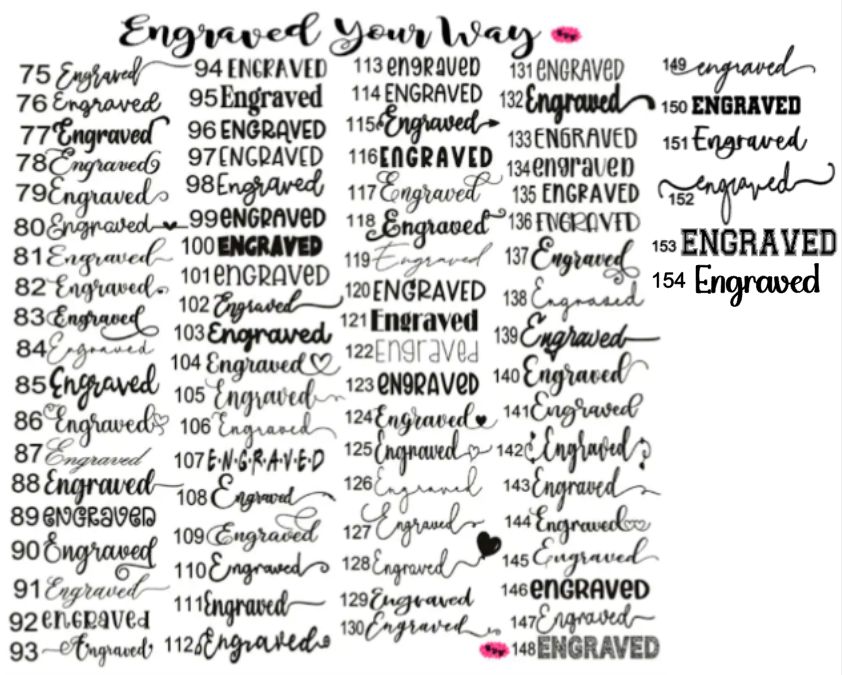 Engraved Your Way
75 Engraved
76 Engraved
77 Engraved
78 Engraved
79 Engraved
80 Engraved
81 Engraved
82 Engraved
83 Engraved
84 Engraved
85 Engraved
86 Engraved
87 Engraved
88 Engraved
89 ENGRAVED
90 Engraved
91 Engraved
92 ENGRAVED
93 Engraved
94 ENGRAVED
95 Engraved
96 ENGRAVED
97 ENGRAVED
98 Engraved
99 ENGRAVED
100 ENGRAVED
101 ENGRAVED
102 Engraved
103 Engraved
104 Engraved
105 Engraved
106 Engraved
107 E·N·G·R·A·V·E·D
108 Engraved
109 Engraved
110 Engraved
111 Engraved
112 Engraved
113 ENGRAVED
114 ENGRAVED
115 Engraved
116 ENGRAVED
117 Engraved
118 Engraved
119 Engraved
120 ENGRAVED
121 Engraved
122 Engraved
123 ENGRAVED
124 Engraved
125 Engraved
126 Engraved
127 Engraved
128 Engraved
129 Engraved
130 Engraved
131 ENGRAVED
132 Engraved
133 ENGRAVED
134 engraved
135 ENGRAVED
136 ENGRAVED
137 Engraved
138 Engraved
139 Engraved
140 Engraved
141 Engraved
142 Engraved
143 Engraved
144 Engraved
145 Engraved
146 ENGRAVED
147 Engraved
148 ENGRAVED
149 engraved
150 ENGRAVED
151 Engraved
152 engraved
153 ENGRAVED
154 Engraved